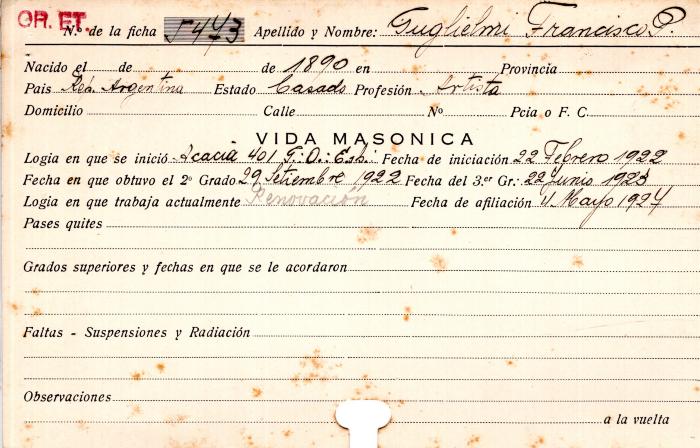 OR. ET.
N.º de la ficha 5473 Apellido y Nombre: Guglielmi Francisco P.
Nacido el de de 1890 en Provincia
Pais Rep. Argentina Estado Casado Profesión Artista
Domicilio Calle Nº Pcia o F. C.
VIDA MASONICA
Logia en que se inició Acacia 401 G∴O∴Esp∴ Fecha de iniciación 22 Febrero 1922
Fecha en que obtuvo el 2º Grado 29 Setiembre 1922 Fecha del 3.er Gr: 22 Junio 1923
Logia en que trabaja actualmente Renovación Fecha de afiliación Mayo 1927
Pases quites
Grados superiores y fechas en que se le acordaron
Faltas - Suspensiones y Radiación
Observaciones
a la vuelta